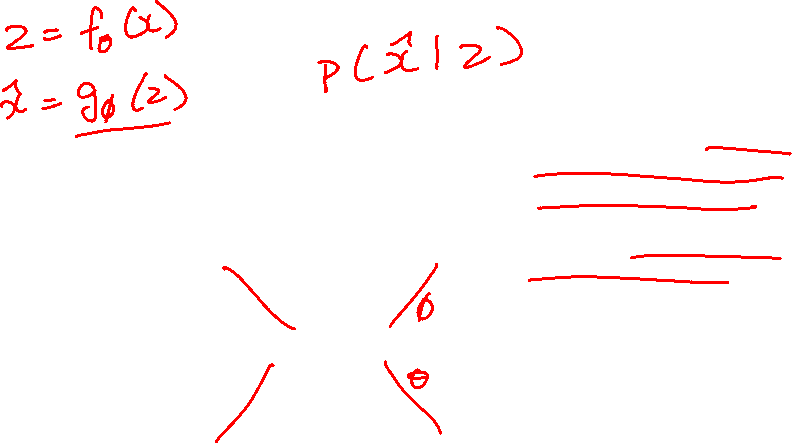 z = f_θ(x)
x̂ = g_ϕ(z)
P(x̂|z)
ϕ
θ